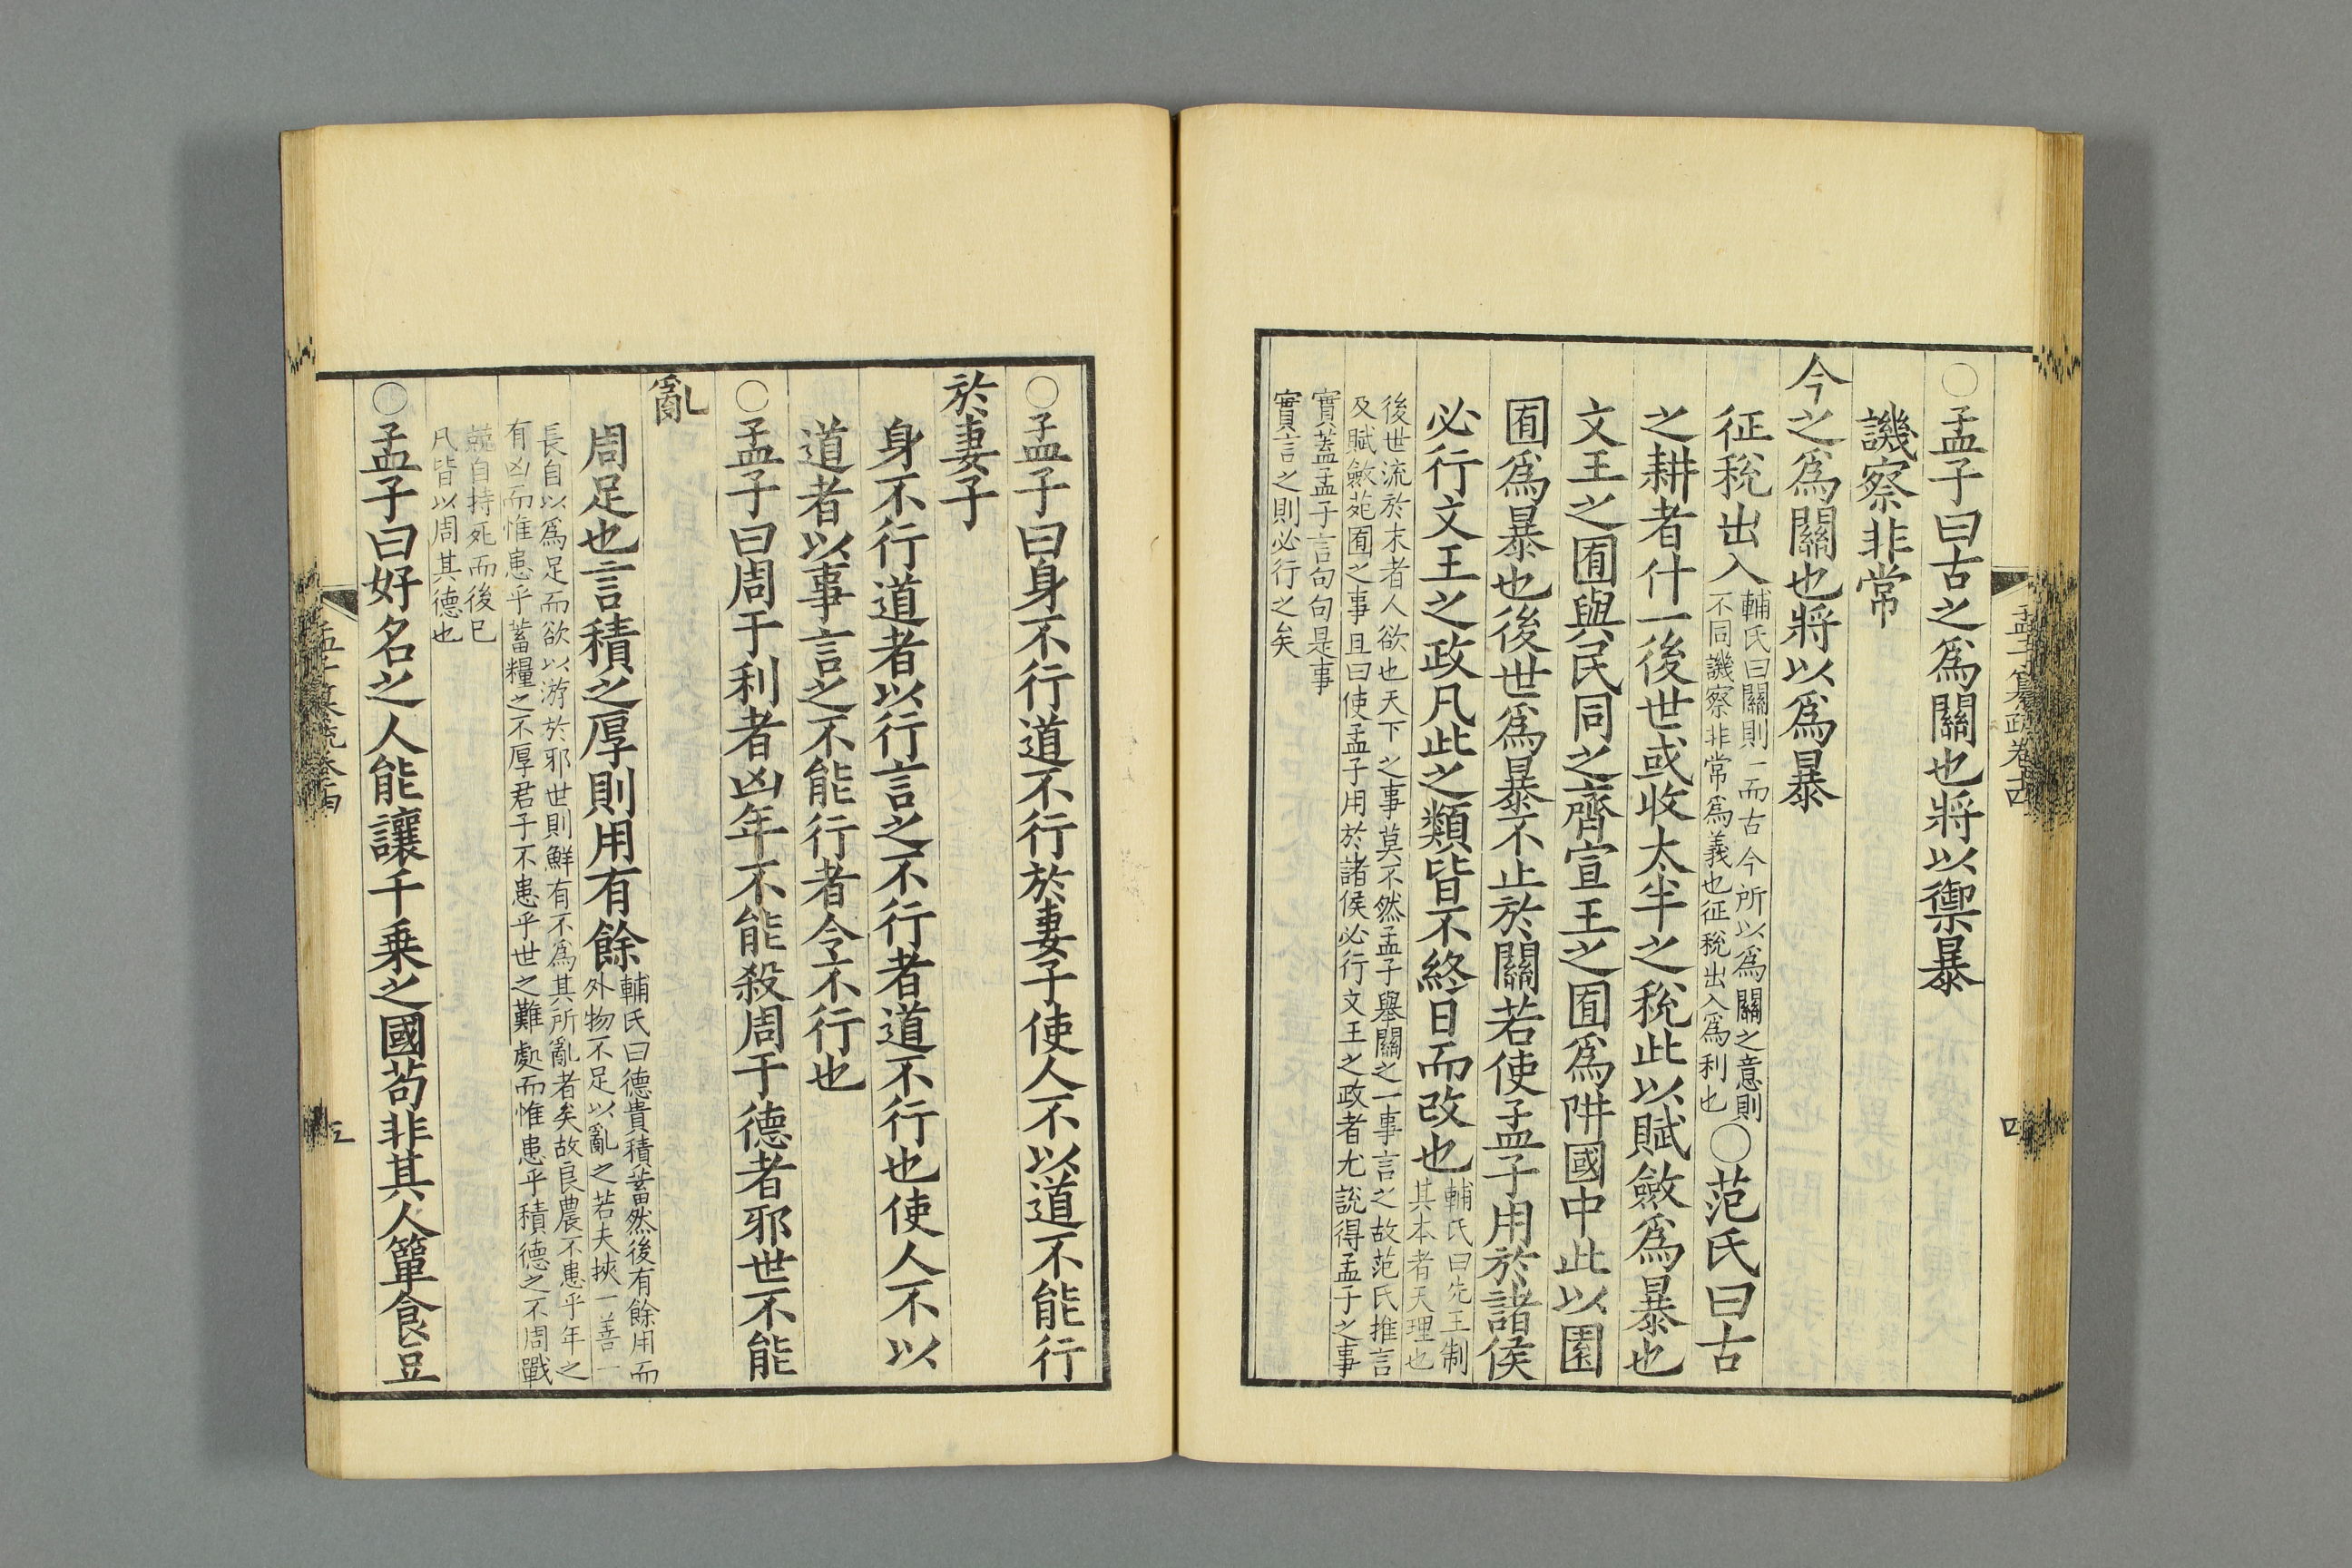 ○孟子曰古之爲關也將以禦暴
譏察非常
今之爲關也將以爲暴
征稅出入
輔氏曰關則一而古今所以爲關之意則
不同譏察非常爲義也征稅出入爲利也
○范氏曰古
之耕者什一後世或收太半之稅此以賦斂爲暴也
文王之囿與民同之齊宣王之囿爲阱國中此以園
囿爲暴也後世爲暴不止於關若使孟子用於諸侯
必行文王之政凡此之類皆不終日而改也
輔氏曰先王制
其本者天理也
後世流於末者人欲也天下之事莫不然孟子舉關之一事言之故范氏推言
及賦斂苑囿之事且曰使孟子用於諸侯必行文王之政者尤說得孟子之事
實蓋孟子言句句是事
實言之則必行之矣
○孟子曰身不行道不行於妻子使人不以道不能行
於妻子
身不行道者以行言之不行者道不行也使人不以
道者以事言之不能行者令不行也
○孟子曰周于利者凶年不能殺周于德者邪世不能
亂
周足也言積之厚則用有餘
輔氏曰德貴積蓄然後有餘用而
外物不足以亂之若夫挾一善一
長自以爲足而欲以游於邪世則鮮有不爲其所亂者矣故良農不患乎年之
有凶而惟患乎蓄糧之不厚君子不患乎世之難處而惟患乎積德之不周戰
兢自持死而後已
凡皆以周其德也
○孟子曰好名之人能讓千乗之國苟非其人簞食豆
孟子纂疏卷十四
四
五